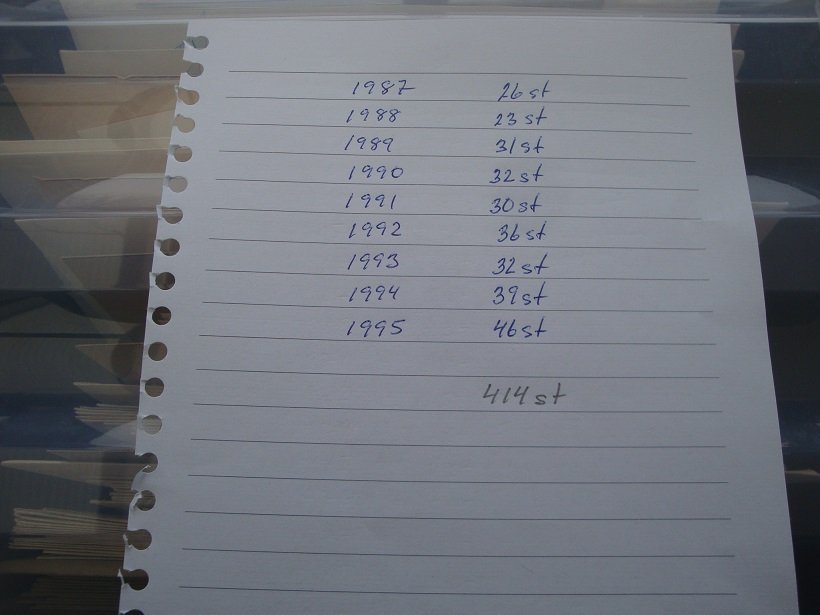 1987 26 st
1988 23 st
1989 31 st
1990 32 st
1991 30 st
1992 36 st
1993 32 st
1994 39 st
1995 46 st
414 st